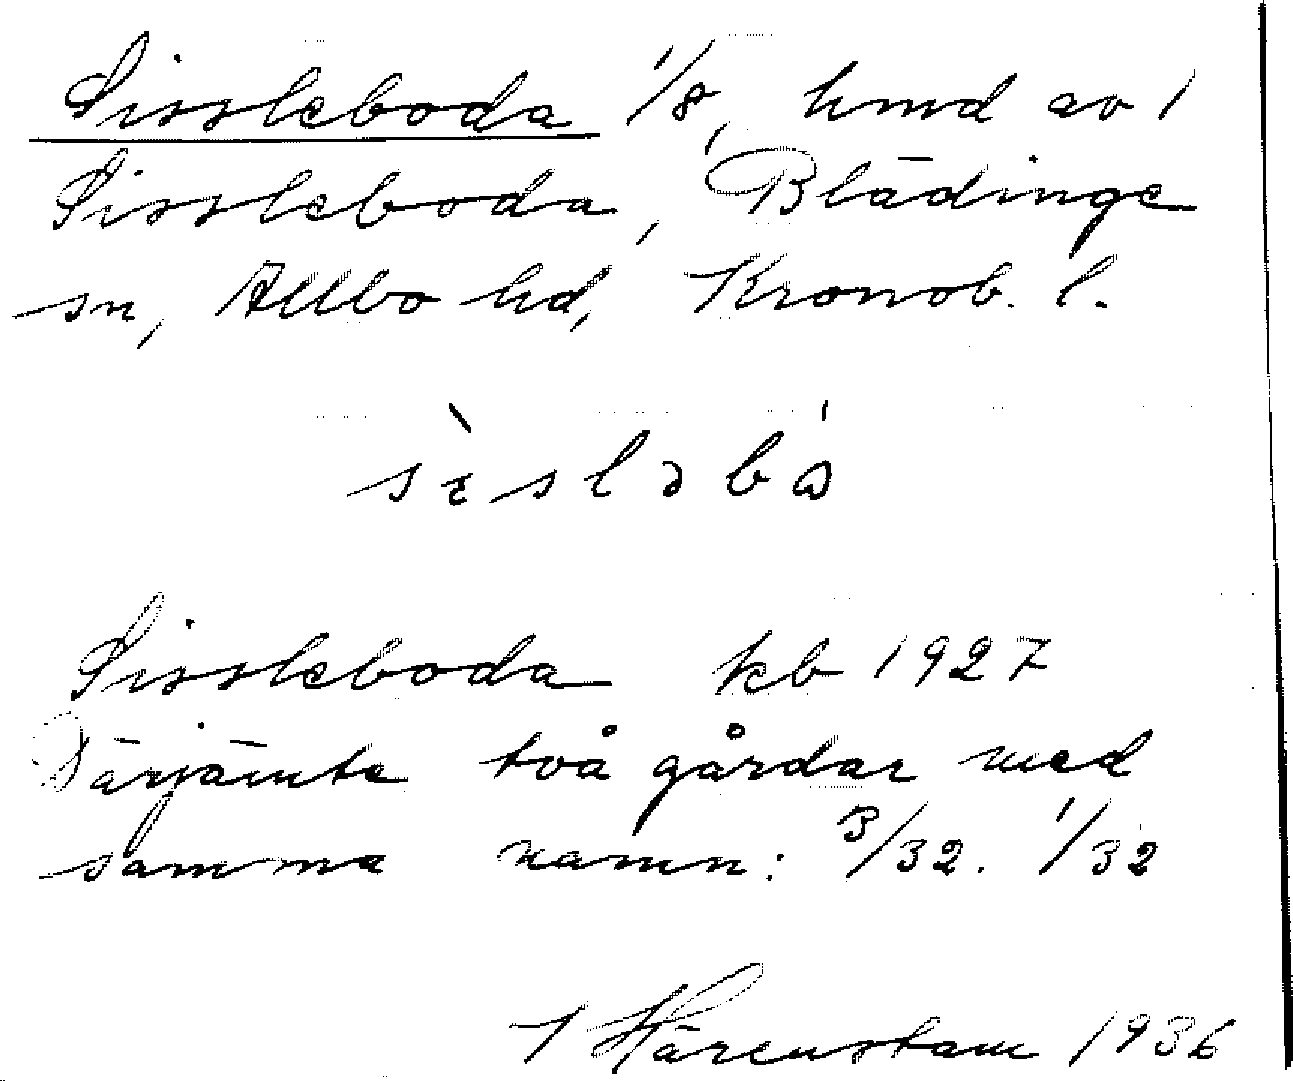 Sissleboda 1/8, hmd av 1
Sissleboda, Blädinge
sn, Allbo hd, Kronob. l.
sìsləbó
Sissleboda kb 1927
Därjämte två gårdar med
samma namn: 3/32. 1/32
Härenstam 1936